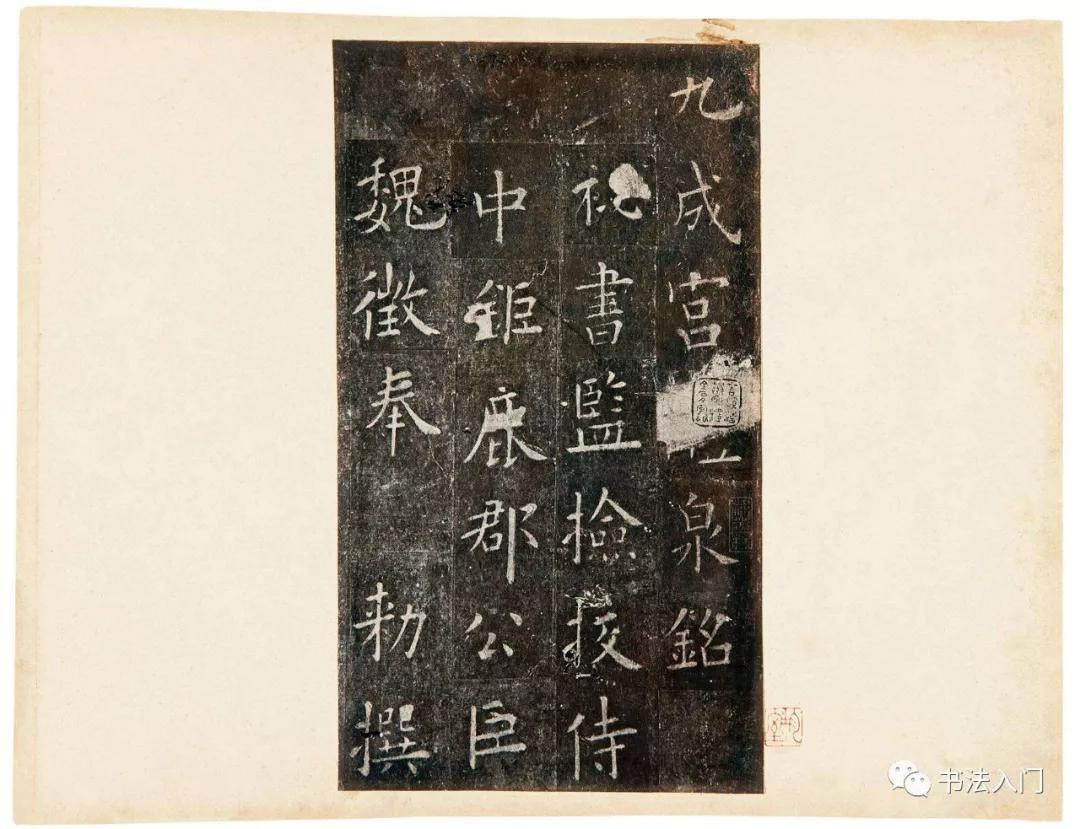 九成宮泉銘
祕書監撿挍侍
中鉅鹿郡公臣
魏徵奉 勑撰
书法入门